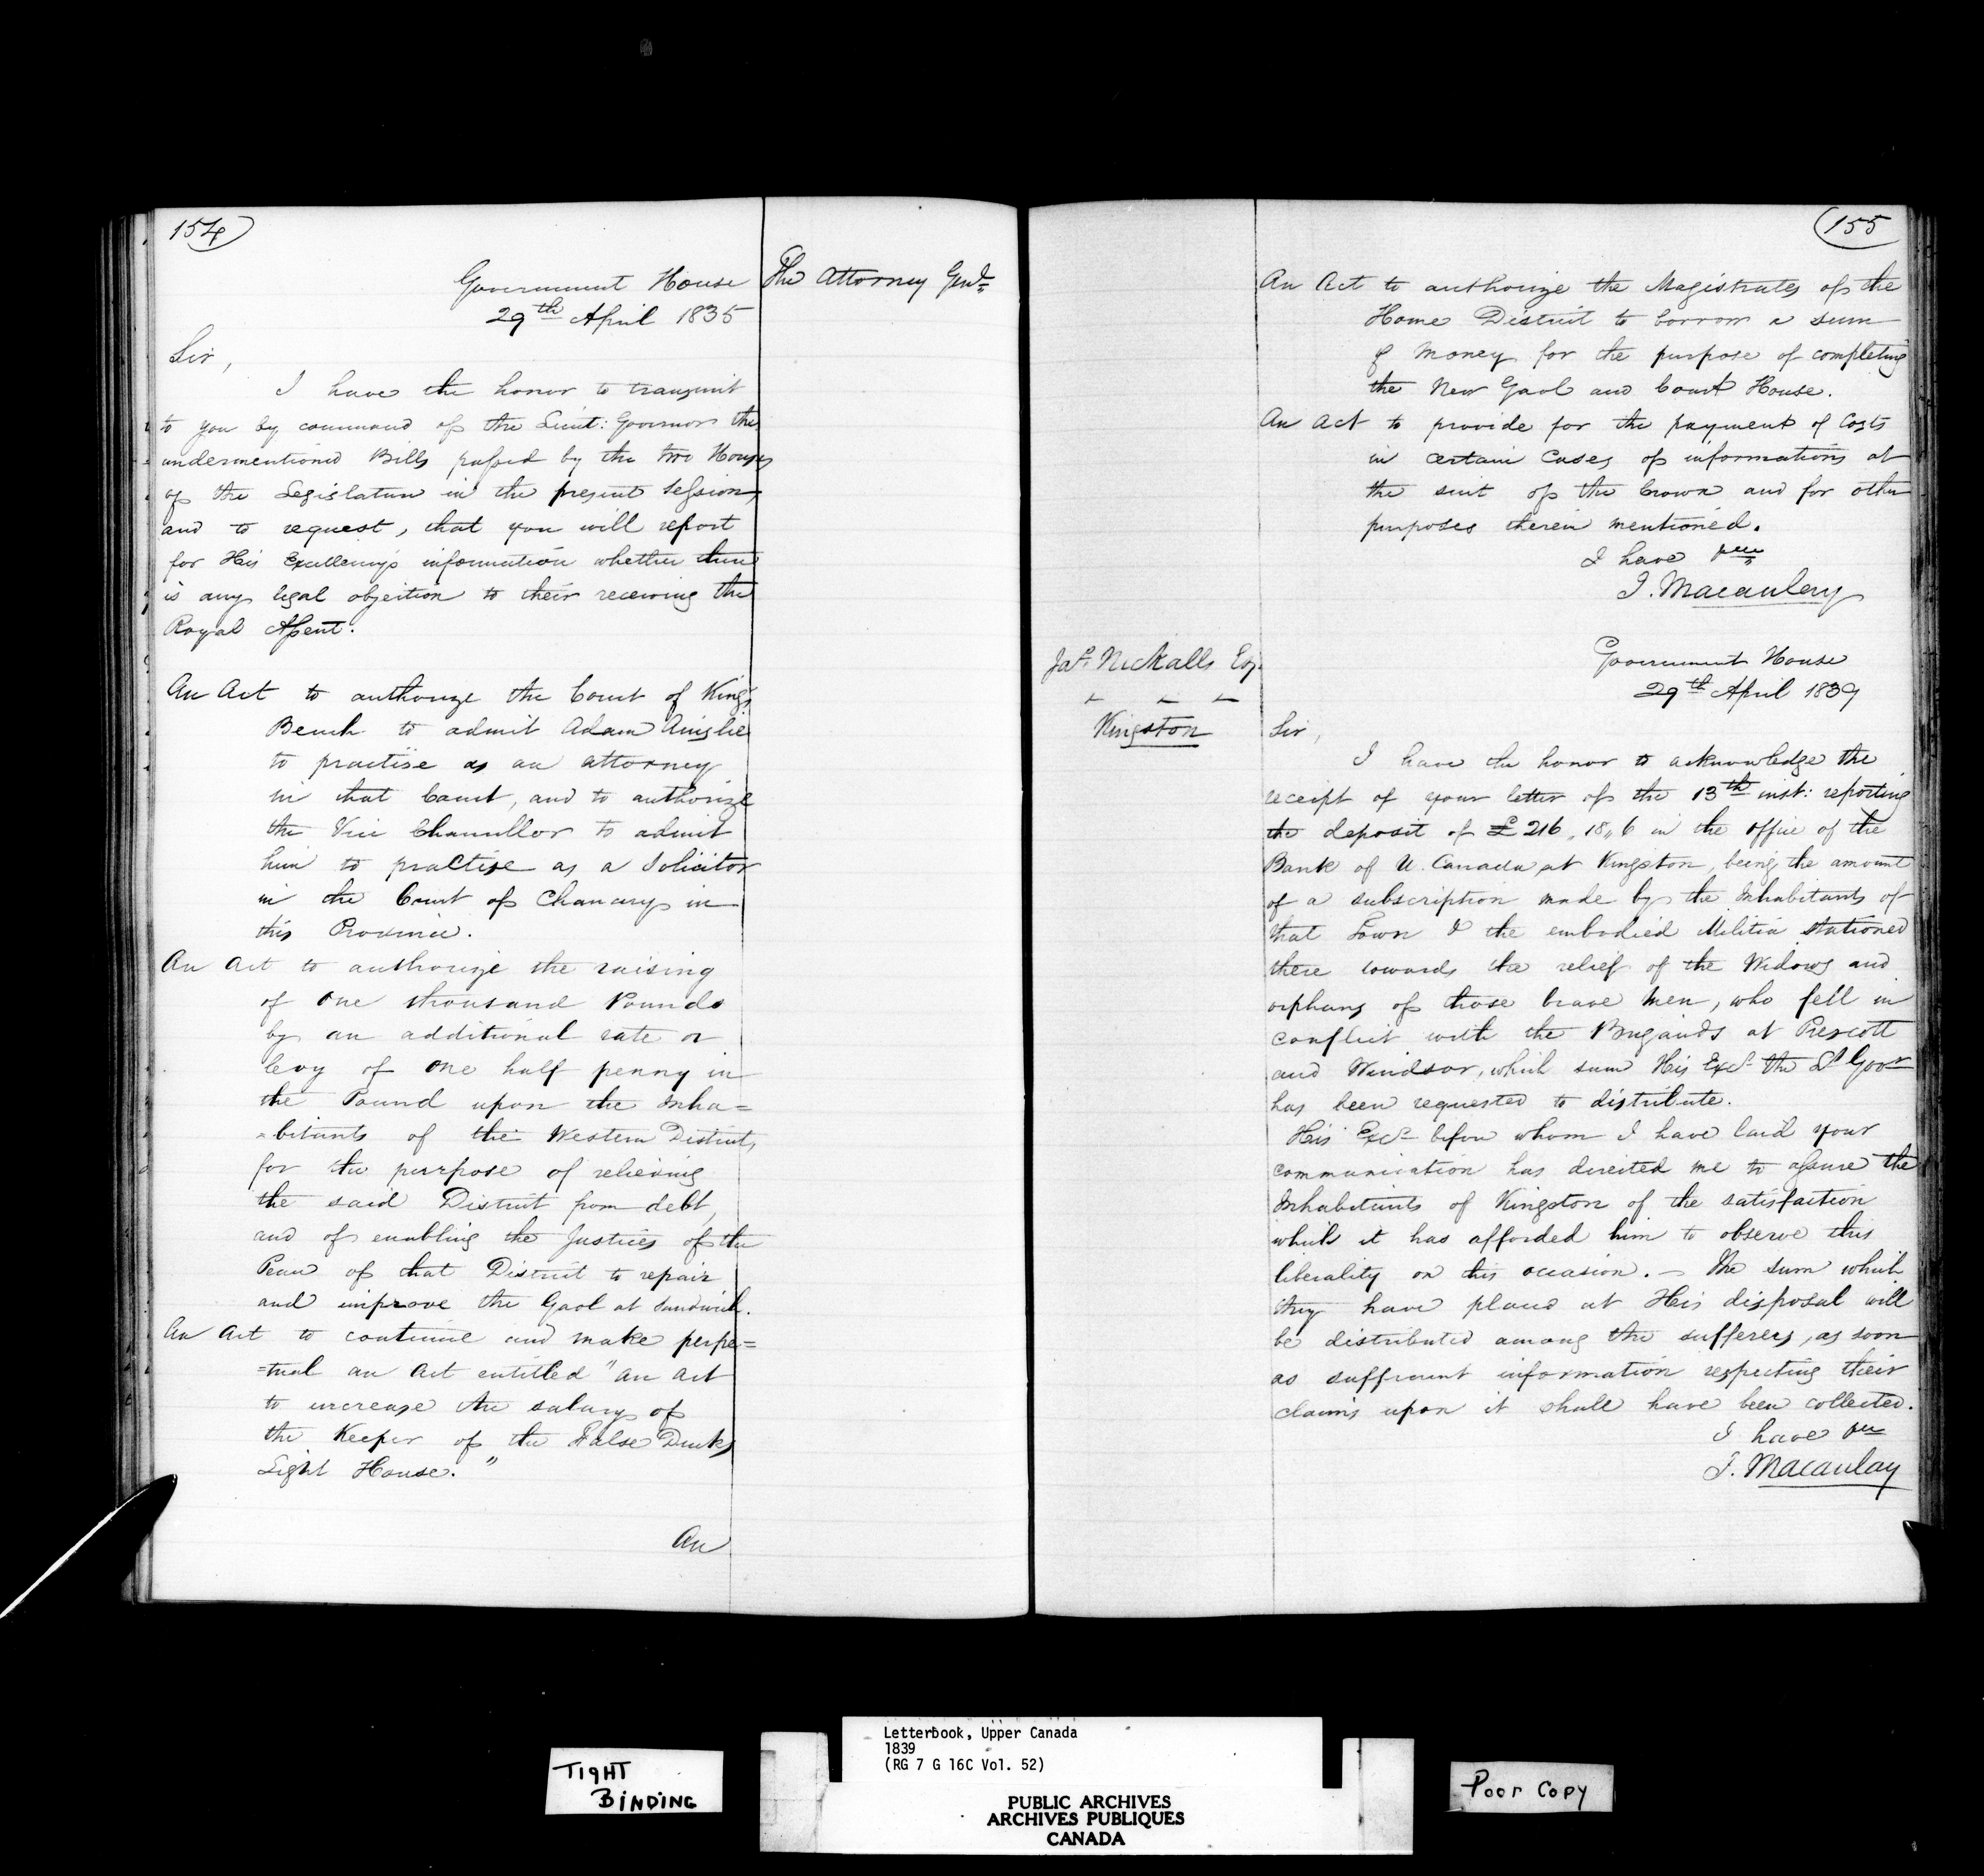 154
Government House
29th April 1835
The Attorney Genl
Sir,
I have the honor to transmit
to you by command of the Lieut: Governor the
undermentioned Bills passed by the two Houses
of the Legislature in the present Session,
and to request, that you will report
for His Excellency's information whether there
is any legal objection to their receiving the
Royal Assent.
An Act to authorize the Court of King's
Bench to admit Adam Ainslie
to practise as an attorney
in that Court, and to authorize
the Vice Chancellor to admit
him to practise as a Solicitor
in the Court of Chancery in
this Province.
An Act to authorize the raising
of One thousand Pounds
by an additional rate or
levy of One half penny in
the Pound upon the Inha=
=bitants of the Western District,
for the purpose of relieving
the said District from debt,
and of enabling the Justices of the
Peace of that District to repair
and improve the Gaol at Sandwich.
An Act to continue and make perpe=
=tual an Act entitled "An Act
to increase the salary of
the Keeper of the False Ducks
Light House."
An
155
An Act to authorize the Magistrates of the
Home District to borrow a sum
of Money for the purpose of completing
the New Gaol and Court House.
An Act to provide for the payment of Costs
in certain Cases of informations at
the suit of the Crown and for other
purposes therein mentioned.
I have
J. Macaulay
Jas. Nickalls Esq.
Kingston
Government House
29th April 1839
Sir,
I have the honor to acknowledge the
receipt of your letter of the 13th inst: reporting
the deposit of £216,,18,,6 in the office of the
Bank of U. Canada at Kingston, being the amount
of a subscription made by the Inhabitants of
that Town & the embodied Militia stationed
there towards the relief of the Widows and
orphans of those brave men, who fell in
conflict with the Brigands at Prescott
and Windsor, which sum His Excy the Lt Govr
has been requested to distribute.
His Excy before whom I have laid your
communication has directed me to assure the
Inhabitants of Kingston of the satisfaction
which it has afforded him to observe this
liberality on this occasion. – The sum which
they have placed at His disposal will
be distributed among the sufferers, as soon
as sufficient information respecting their
claims upon it shall have been collected.
I have
J. Macaulay
TIGHT
BINDING
Letterbook, Upper Canada
1839
(RG 7 G 16C Vol. 52)
PUBLIC ARCHIVES
ARCHIVES PUBLIQUES
CANADA
Poor Copy